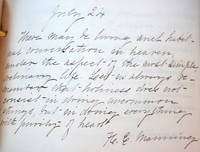 July 24
There may be living and habit-
ual conversation in heaven,
under the aspect of the most simple,
ordinary life. Let us always re-
member that holiness does not
consist in doing uncommon
things, but in doing everything
with purity of heart
H. E. Manning